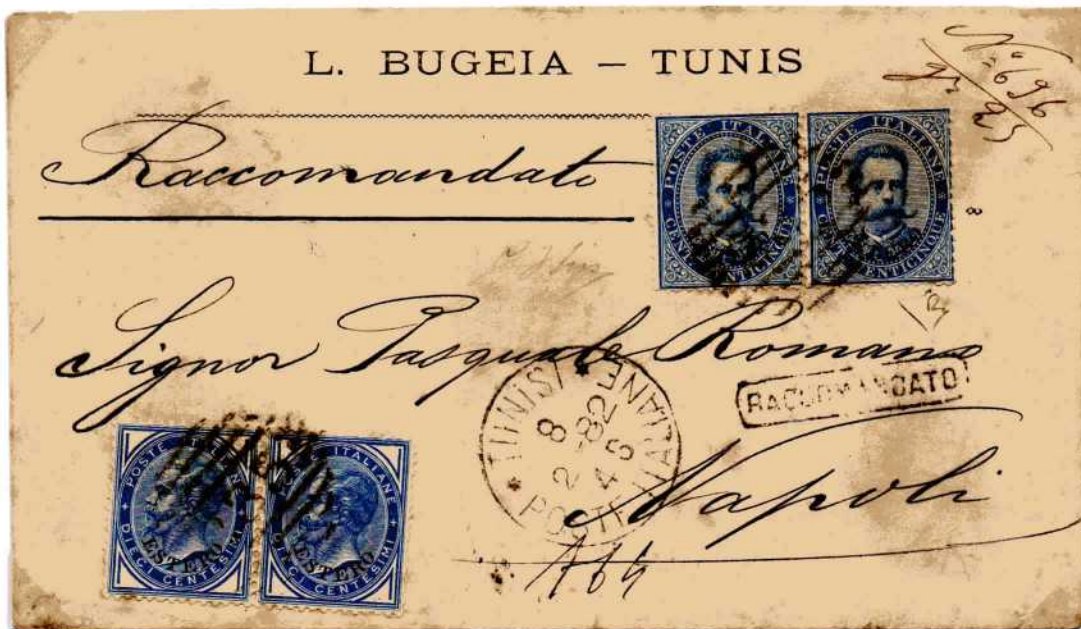 L. BUGEIA – TUNIS
No. 696
gr. 25
Raccomandata
POSTE ITALIANE
CENT. VENTICINQUE
POSTE ITALIANE
CENT. VENTICINQUE
8
Signor Pasquale Romano
RACCOMANDATO
TUNISI
POSTE ITALIANE
8
2 -82
4 S
Napoli
POSTE ITALIANE
DIECI CENTESIMI
ESTERO
POSTE ITALIANE
DIECI CENTESIMI
ESTERO